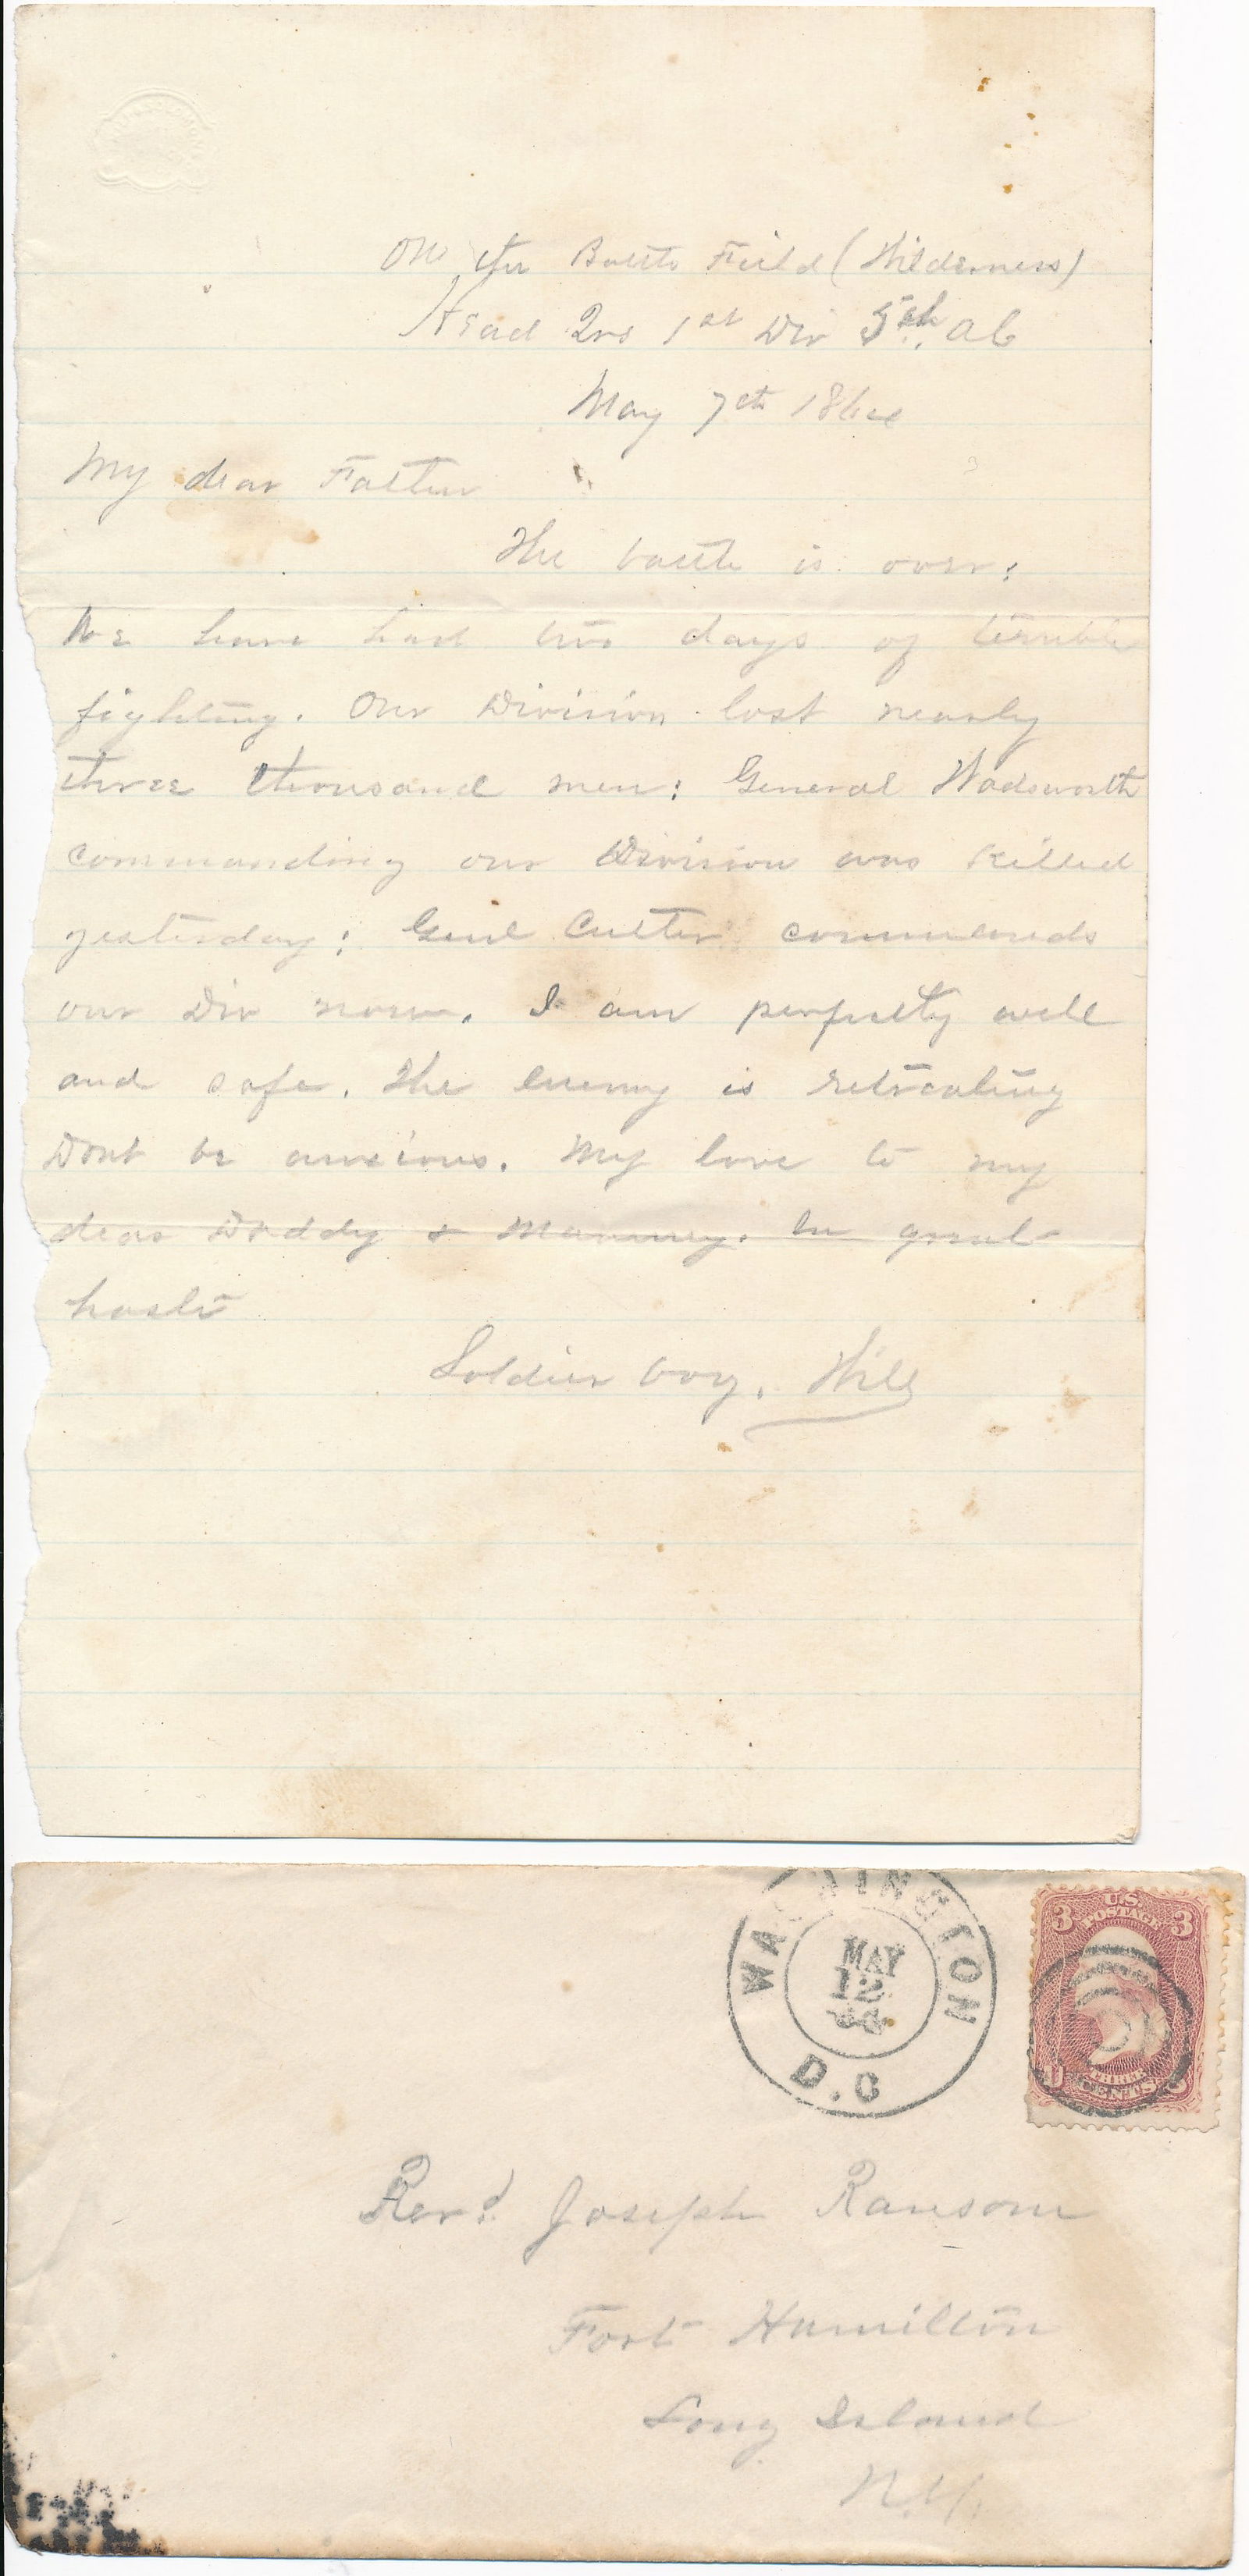 On the Battle Field (Wilderness)
Head Qrs 1st Div 5th, AC
May 7th 1864
My dear Father
The battle is over:
We have had two days of terrible
fighting. Our Division lost nearly
three thousand men: General Wadsworth
commanding our Division was killed
yesterday: Genl Cutler commands
our Div now. I am perfectly well
and safe. The enemy is retreating
Dont be anxious. My love to my
dear Daddy & Mammey. In great
haste
Soldier boy. Will
WASHINGTON
MAY
12
D.C
U.S.
POSTAGE
3 3
THREE
CENTS
Revd Joseph Ransom
Fort Hamilton
Long Island
N.Y.